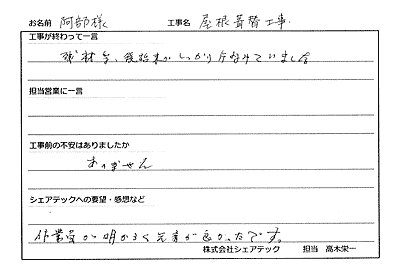 お名前 阿部様 工事名 屋根葺替工事
工事が終わって一言
残材等、後始末がしっかり出来ていました
担当営業に一言
工事前の不安はありましたか
ありません
シェアテックへの要望・感想など
作業員が明かるく元気が良かったです。
株式会社シェアテック 担当 高木栄一